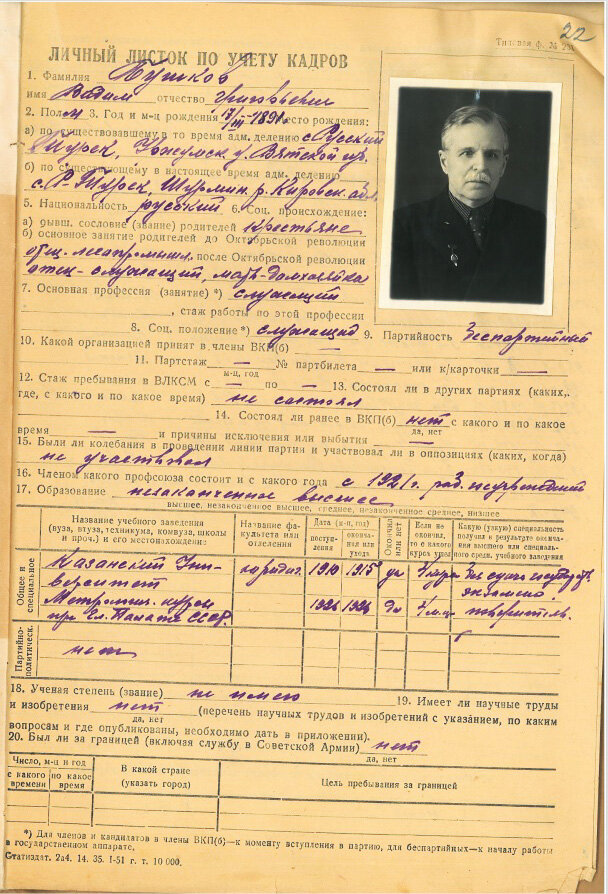 22
Типовая ф. № 2
ЛИЧНЫЙ ЛИСТОК ПО УЧЕТУ КАДРОВ
1. Фамилия
имя Вадим отчество Григорьевич
2. Пол М 3. Год и м-ц рождения 17/III-1891 место рождения:
а) по существовавшему в то время адм. делению с. Русский
Турек, Уржумск. у. Вятской губ.
б) по существующему в настоящее время адм. делению
с. Р-Турек, Шурмин. р. Кировск. обл.
5. Национальность русский 6. Соц. происхождение:
а) бывш. сословие (звание) родителей крестьяне
б) основное занятие родителей до Октябрьской революции
отец лесопромышл. после Октябрьской революции
отец-служащий, мать-домхозяйка
7. Основная профессия (занятие) *) служащий
, стаж работы по этой профессии
8. Соц. положение *) служащий 9. Партийность Беспартийный
10. Какой организацией принят в члены ВКП(б) —
11. Партстаж — № партбилета — или к/карточки —
м-ц, год
12. Стаж пребывания в ВЛКСМ с — по — 13. Состоял ли в других партиях (каких,
где, с какого и по какое время) не состоял
14. Состоял ли ранее в ВКП(б) нет с какого и по какое
да, нет
время — и причины исключения или выбытия —
15. Были ли колебания в проведении линии партии и участвовал ли в оппозициях (каких, когда)
не участвовал
16. Членом какого профсоюза состоит и с какого года с 1921 г. раб. госучреждений
17. Образование незаконченное высшее
высшее, незаконченное высшее, среднее, незаконченное среднее, низшее
Общее и специальное
Название учебного заведения (вуза, втуза, техникума, комвуза, школы и проч.) и его местонахождение:
Название факультета или отделения
Дата (м-ц, год)
поступления
окончания или ухода
Окончил или нет
Если не окончил, то с какого курса ушел
Какую (узкую) специальность получил в результате окончания высшего или специального средн. учебного заведения
Казанский Университет юридич. 1910 1915 Без сдачи государств. экзаменов
курсы при Гл. Палате СССР. 1924 1924 да поверитель.
Партийно-политическ.
нет
18. Ученая степень (звание) не имею 19. Имеет ли научные труды
и изобретения нет (перечень научных трудов и изобретений с указанием, по каким
да, нет
вопросам и где опубликованы, необходимо дать в приложении).
20. Был ли за границей (включая службу в Советской Армии) нет
да, нет
Число, м-ц и год
с какого времени
по какое время
В какой стране (указать город)
Цель пребывания за границей
*) Для членов и кандидатов в члены ВКП(б)—к моменту вступления в партию, для беспартийных—к началу работы
в государственном аппарате.
Статиздат. 2а4. 14. 35. I-51 г. т. 10 000.